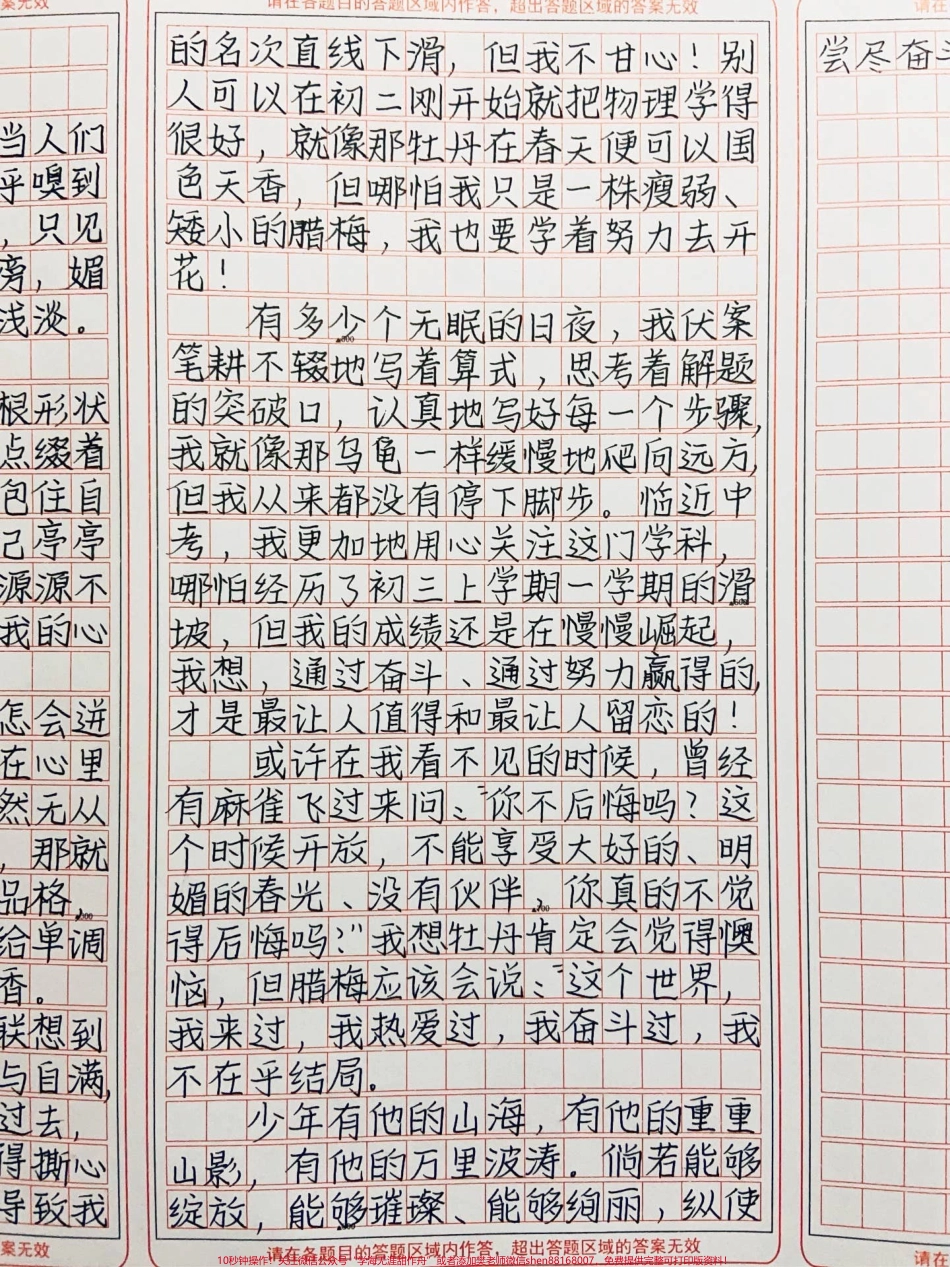 案无效
当人们
乎嗅到
，只见
旁，媚
浅淡。
根形状
点缀着
包住自
己亭亭
源源不
我的心
怎会迸
在心里
然无从
，那就
品格，
给单调
香。
联想到
与自满，
过去，
得撕心
导致我
案无效
请在各题目的答题区域内作答，超出答题区域的答案无效
的名次直线下滑，但我不甘心！别
人可以在初二刚开始就把物理学得
很好，就像那牡丹在春天便可以国
色天香，但哪怕我只是一株瘦弱、
矮小的腊梅，我也要学着努力去开
花！
有多少个无眠的日夜，我伏案
笔耕不辍地写着算式，思考着解题
的突破口，认真地写好每一个步骤，
我就像那乌龟一样缓慢地爬向远方，
但我从来都没有停下脚步。临近中
考，我更加地用心关注这门学科，
哪怕经历了初三上学期一学期的滑
坡，但我的成绩还是在慢慢崛起，
我想，通过奋斗、通过努力赢得的，
才是最让人值得和最让人留恋的！
或许在我看不见的时候，曾经
有麻雀飞过来问：“你不后悔吗？这
个时候开放，不能享受大好的、明
媚的春光、没有伙伴，你真的不觉
得后悔吗？”我想牡丹肯定会觉得懊
恼，但腊梅应该会说：“这个世界，
我来过，我热爱过，我奋斗过，我
不在乎结局。
少年有他的山海，有他的重重
山影，有他的万里波涛。倘若能够
绽放，能够璀璨、能够绚丽，纵使
请在各题目的答题区域内作答，超出答题区域的答案无效
尝尽奋斗
请在